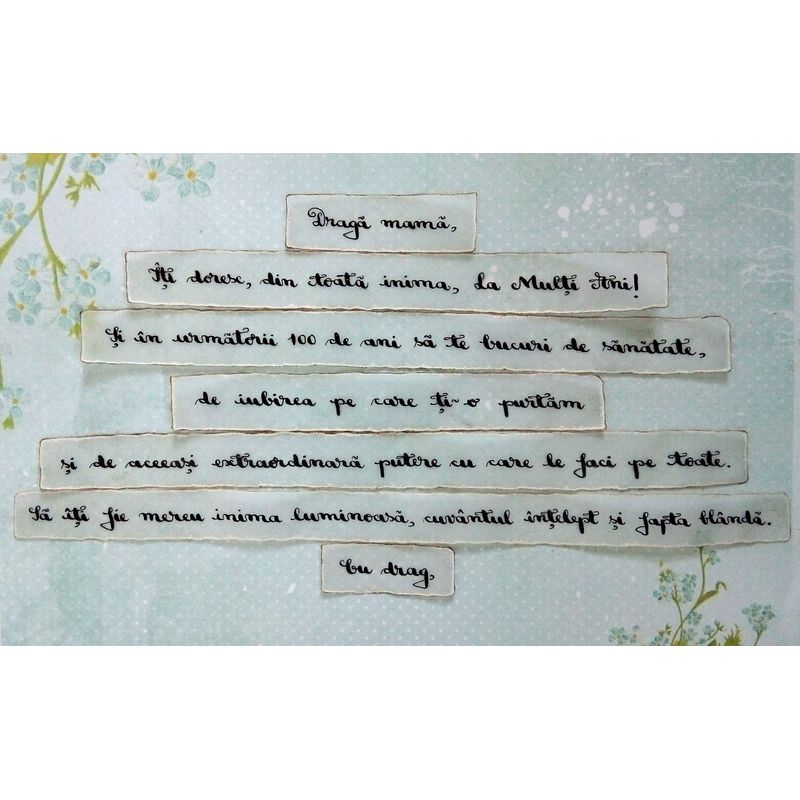 Dragă mamă,
Îți doresc, din toată inima, La Mulți Ani!
Și în următorii 100 de ani să te bucuri de sănătate,
de iubirea pe care ți-o purtăm
și de aceeași extraordinară putere cu care le faci pe toate.
Să îți fie mereu inima luminoasă, cuvântul înțelept și fapta blândă.
Cu drag,